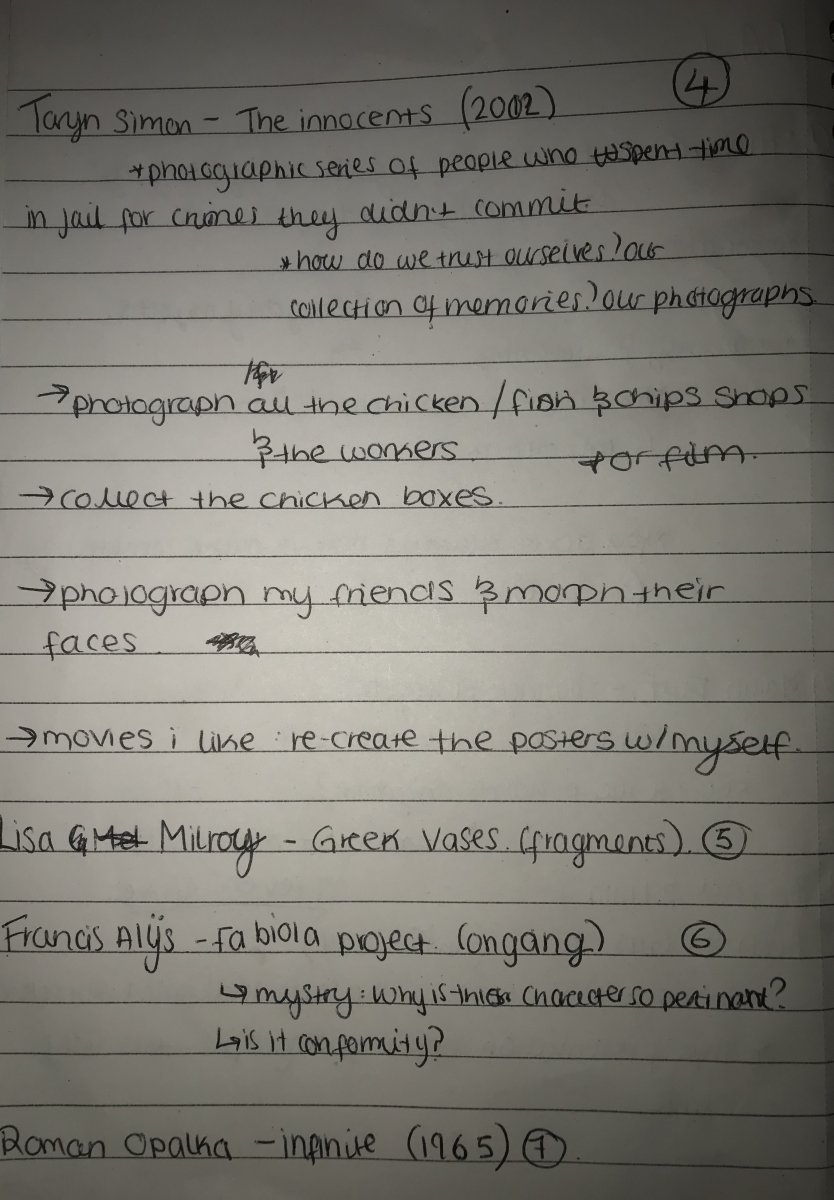 ④
Taryn Simon - The innocents (2002)
*photographic series of people who spent time
in jail for crimes they didn't commit
*how do we trust ourselves? our
collection of memories? our photographs
→photograph all the chicken / fish & chips shops
& the workers
or film.
→collect the chicken boxes.
→photograph my friends & morph their
faces.
→movies i like : re-create the posters w/myself.
Lisa Milroy - Greek Vases. (fragments). ⑤
Francis Alÿs - fabiola project. (ongang) ⑥
↳mystry: why is this character so pertinant?
↳is it conformity?
Roman Opalka - infinite (1965) ⑦.